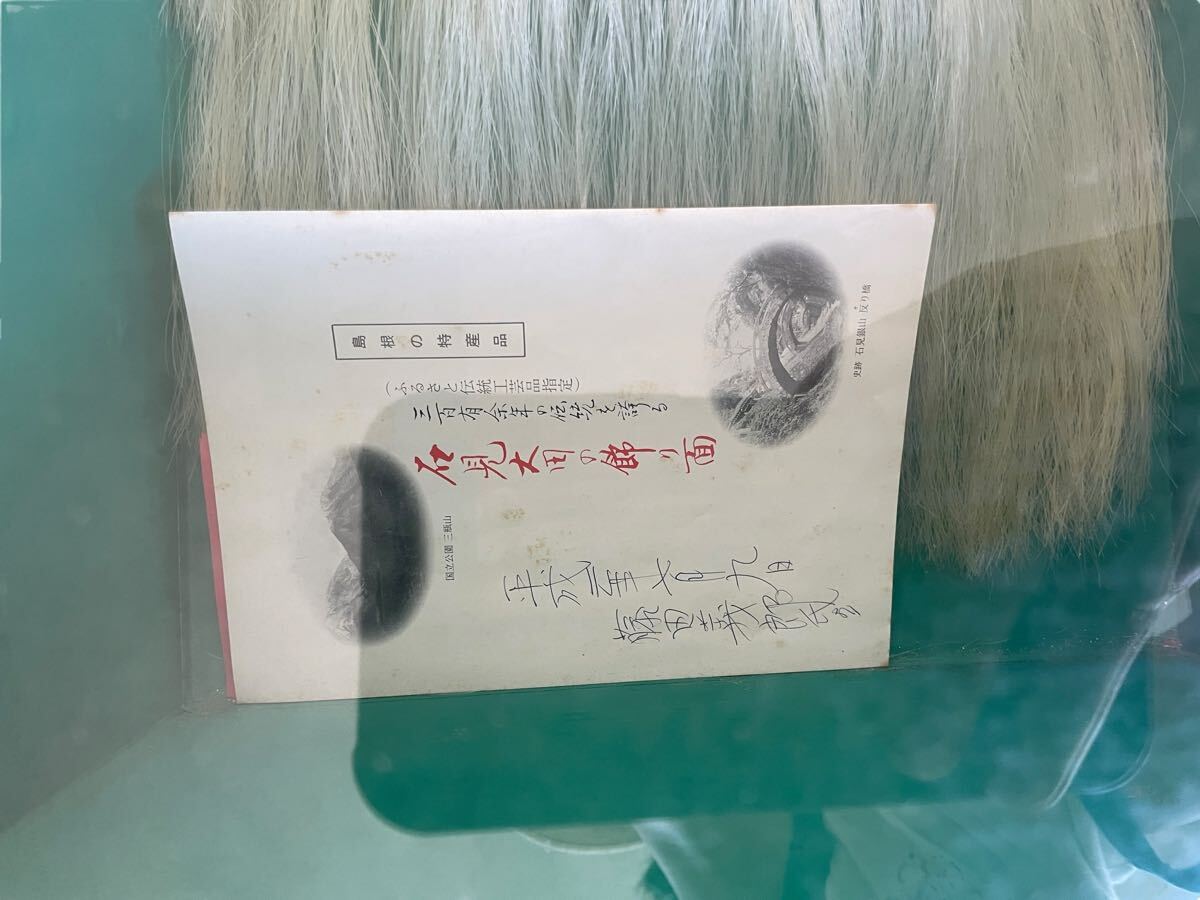 島根の特産品
(ふるさと伝統工芸品指定)
三百有余年の伝統を誇る
石見大田の飾り面
史跡 石見銀山 反り橋
国立公園 三瓶山
平成二年七月十九日
藤田